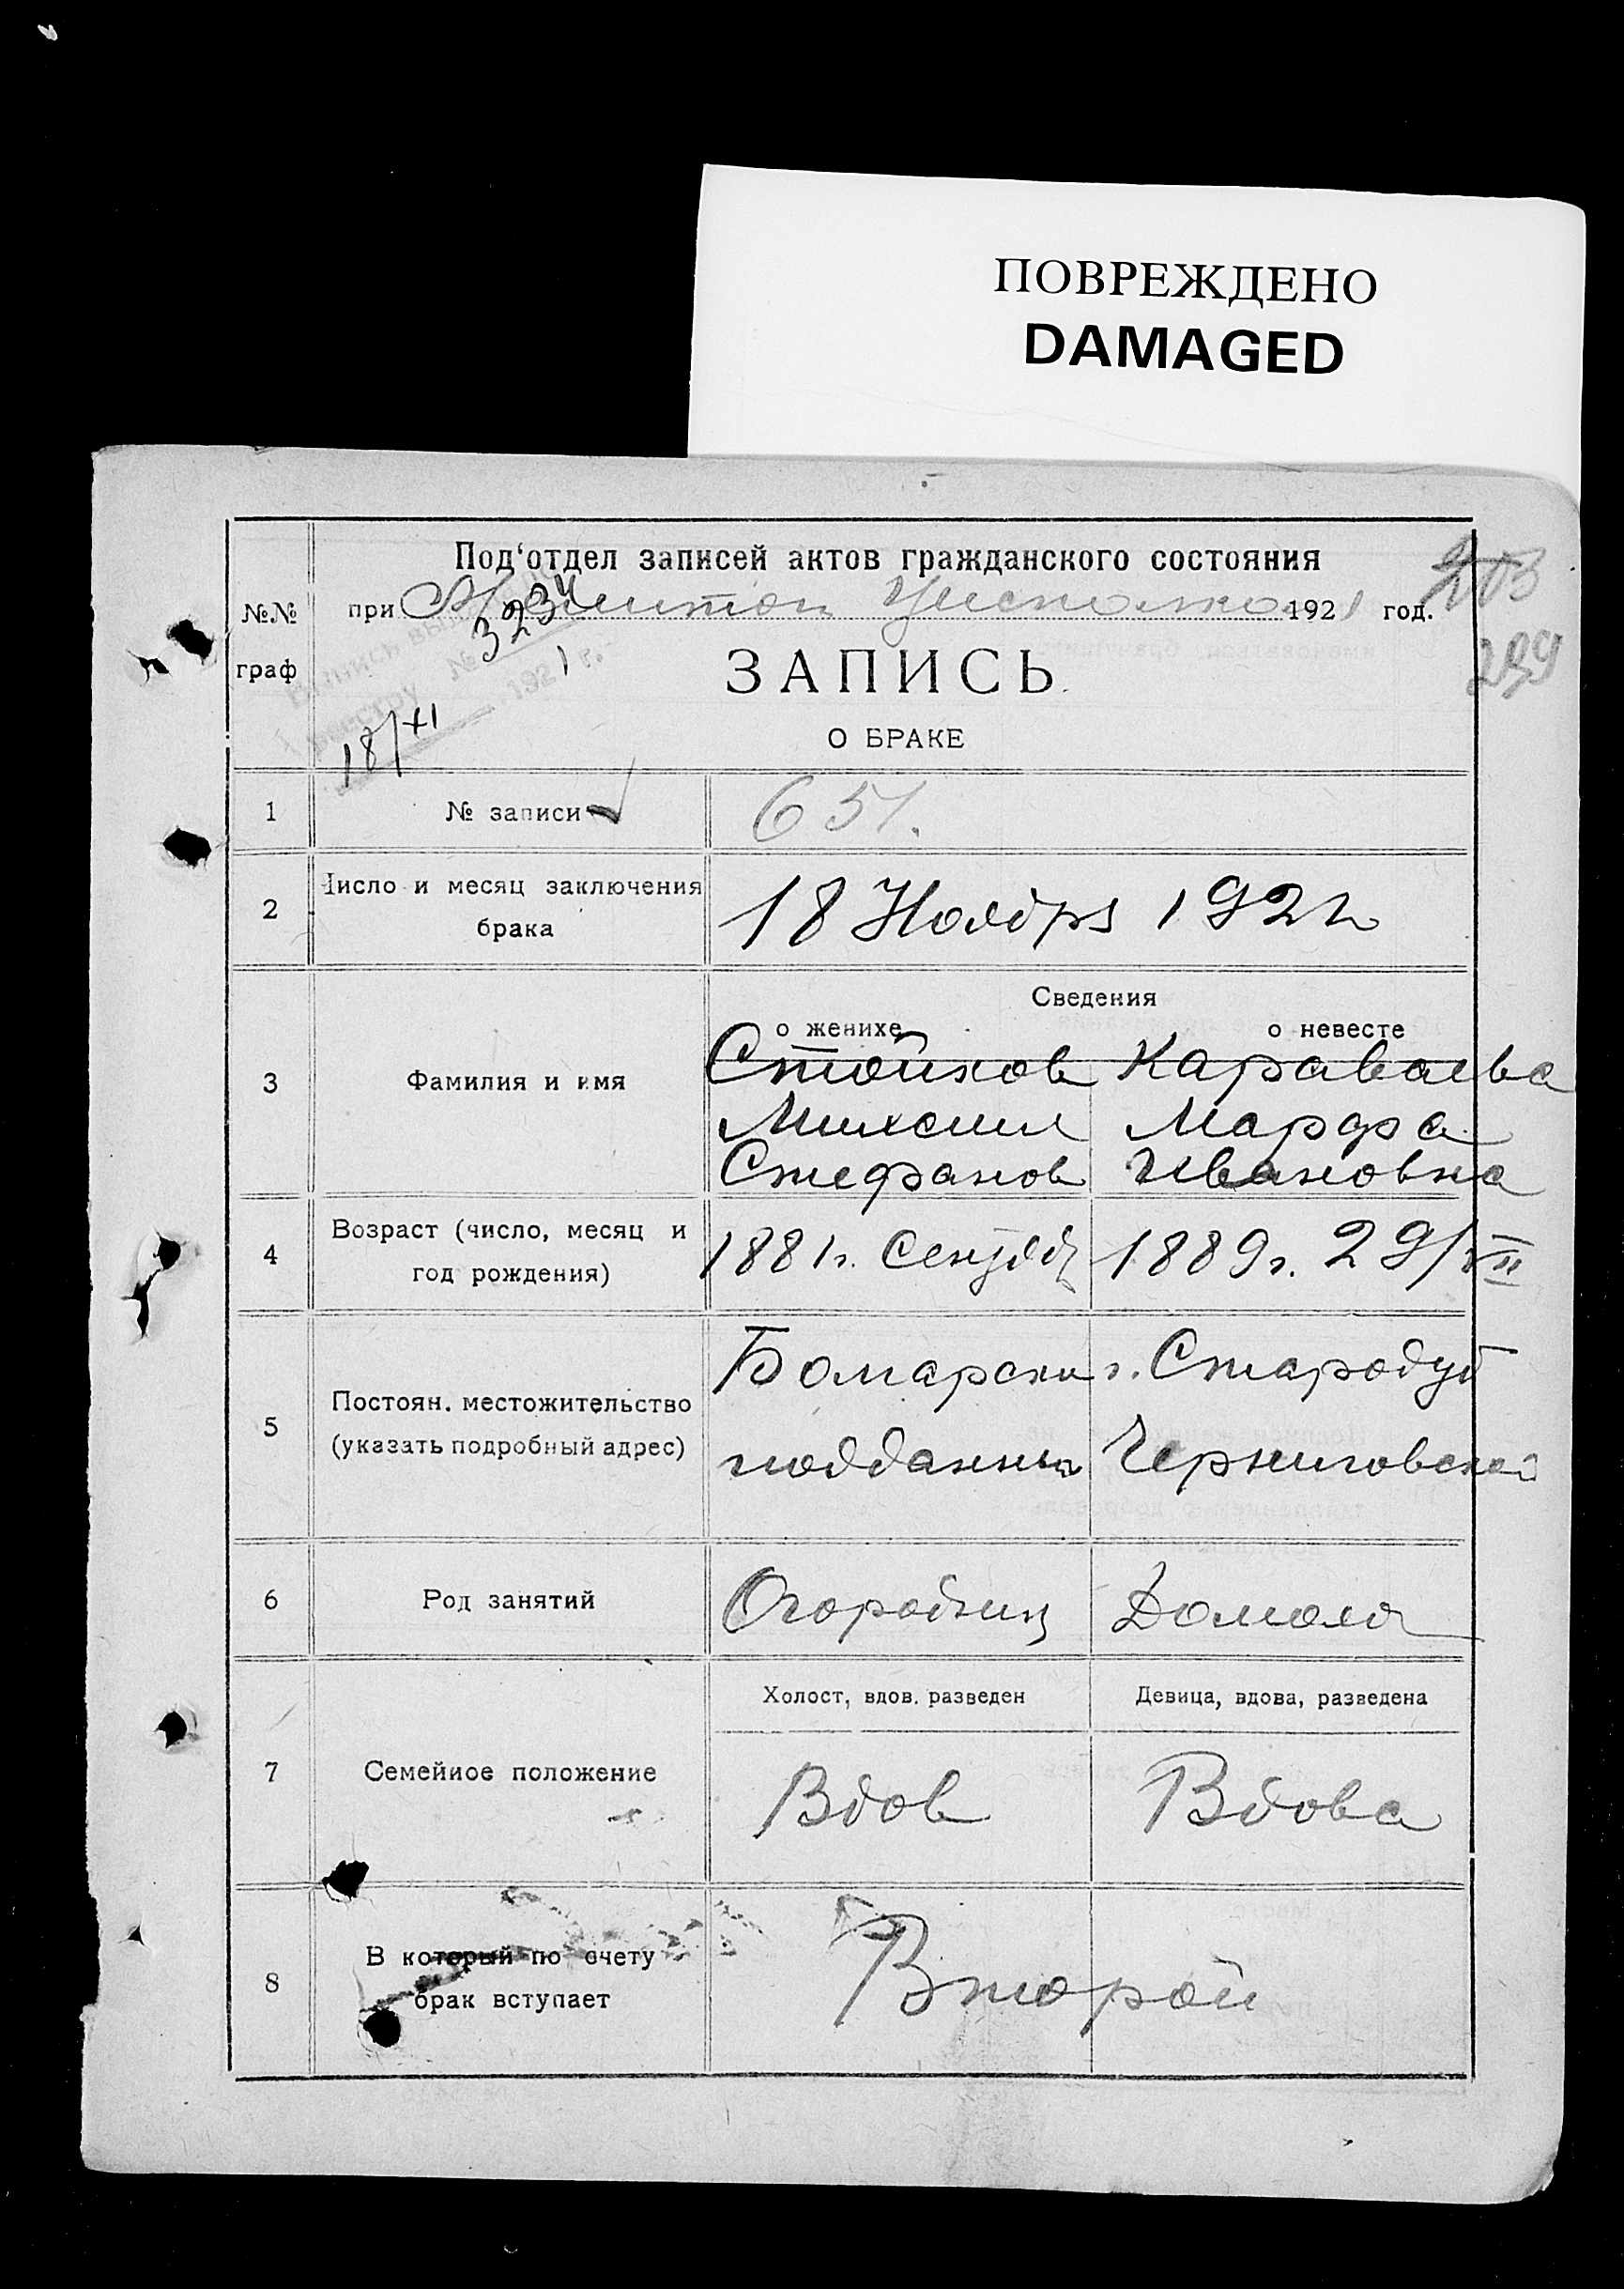 ПОВРЕЖДЕНО
DAMAGED
Под‘отдел записей актов гражданского состояния
при 1921 год.
203
299
№№
граф
3234
1921 г.
ЗАПИСЬ
О БРАКЕ
18/XI
1 № записи 651.
2 Число и месяц заключения
брака
18 Ноября 1921
Сведения
о женихе о невесте
3 Фамилия и имя
Стойков Караваева
Михаил Марфа
Стефанов Ивановна
4 Возраст (число, месяц и
год рождения)
1881г. Сентяб 1889г. 29/VII
5 Постоян. местожительство
(указать подробный адрес)
Болгарски г. Стародуб
подданный Черниговской
6 Род занятий Огородник Домохоз
Холост, вдов. разведен Девица, вдова, разведена
7 Семейное положение Вдов Вдова
8 В который по счету
брак вступает
Второй